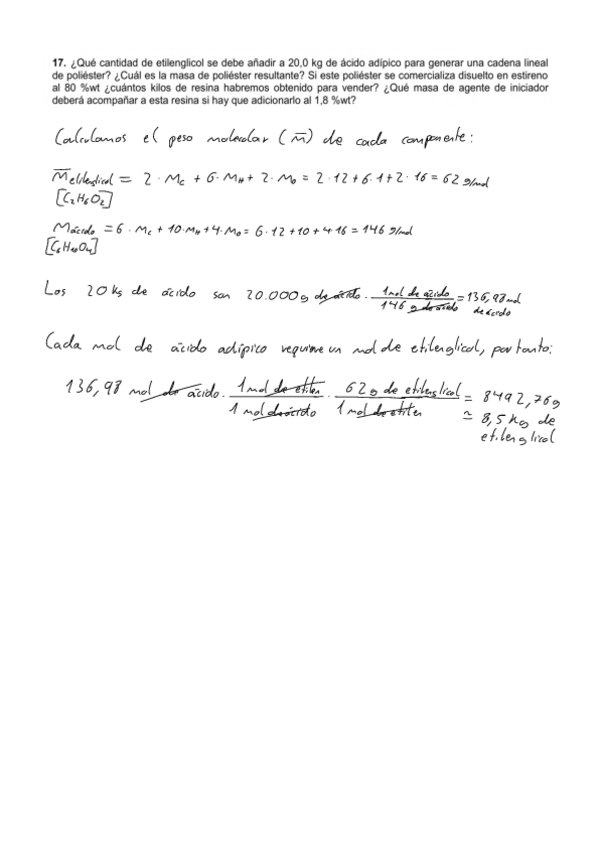 17. ¿Qué cantidad de etilenglicol se debe añadir a 20,0 kg de ácido adípico para generar una cadena lineal
de poliéster? ¿Cuál es la masa de poliéster resultante? Si este poliéster se comercializa disuelto en estireno
al 80 %wt ¿cuántos kilos de resina habremos obtenido para vender? ¿Qué masa de agente de iniciador
deberá acompañar a esta resina si hay que adicionarlo al 1,8 %wt?
Calculamos el peso molecular (M̅) de cada componente:
M̅etilenglicol = 2 · Mc + 6 · MH + 2 · Mo = 2 · 12 + 6 · 1 + 2 · 16 = 62 g/mol
[C₂H₆O₂]
Mácido = 6 · Mc + 10 · MH + 4 · Mo = 6 · 12 + 10 + 4 · 16 = 146 g/mol
[C₆H₁₀O₄]
Los 20 kg de ácido son 20.000 g de ácido · 1 mol de ácido / 146 g de ácido = 136,98 mol de ácido
Cada mol de ácido adípico requiere un mol de etilenglicol, por tanto:
136,98 mol de ácido · 1 mol de etilen / 1 mol de ácido · 62 g de etilenglicol / 1 mol de etilen = 8492,76 g
≃ 8,5 kg de
etilenglicol